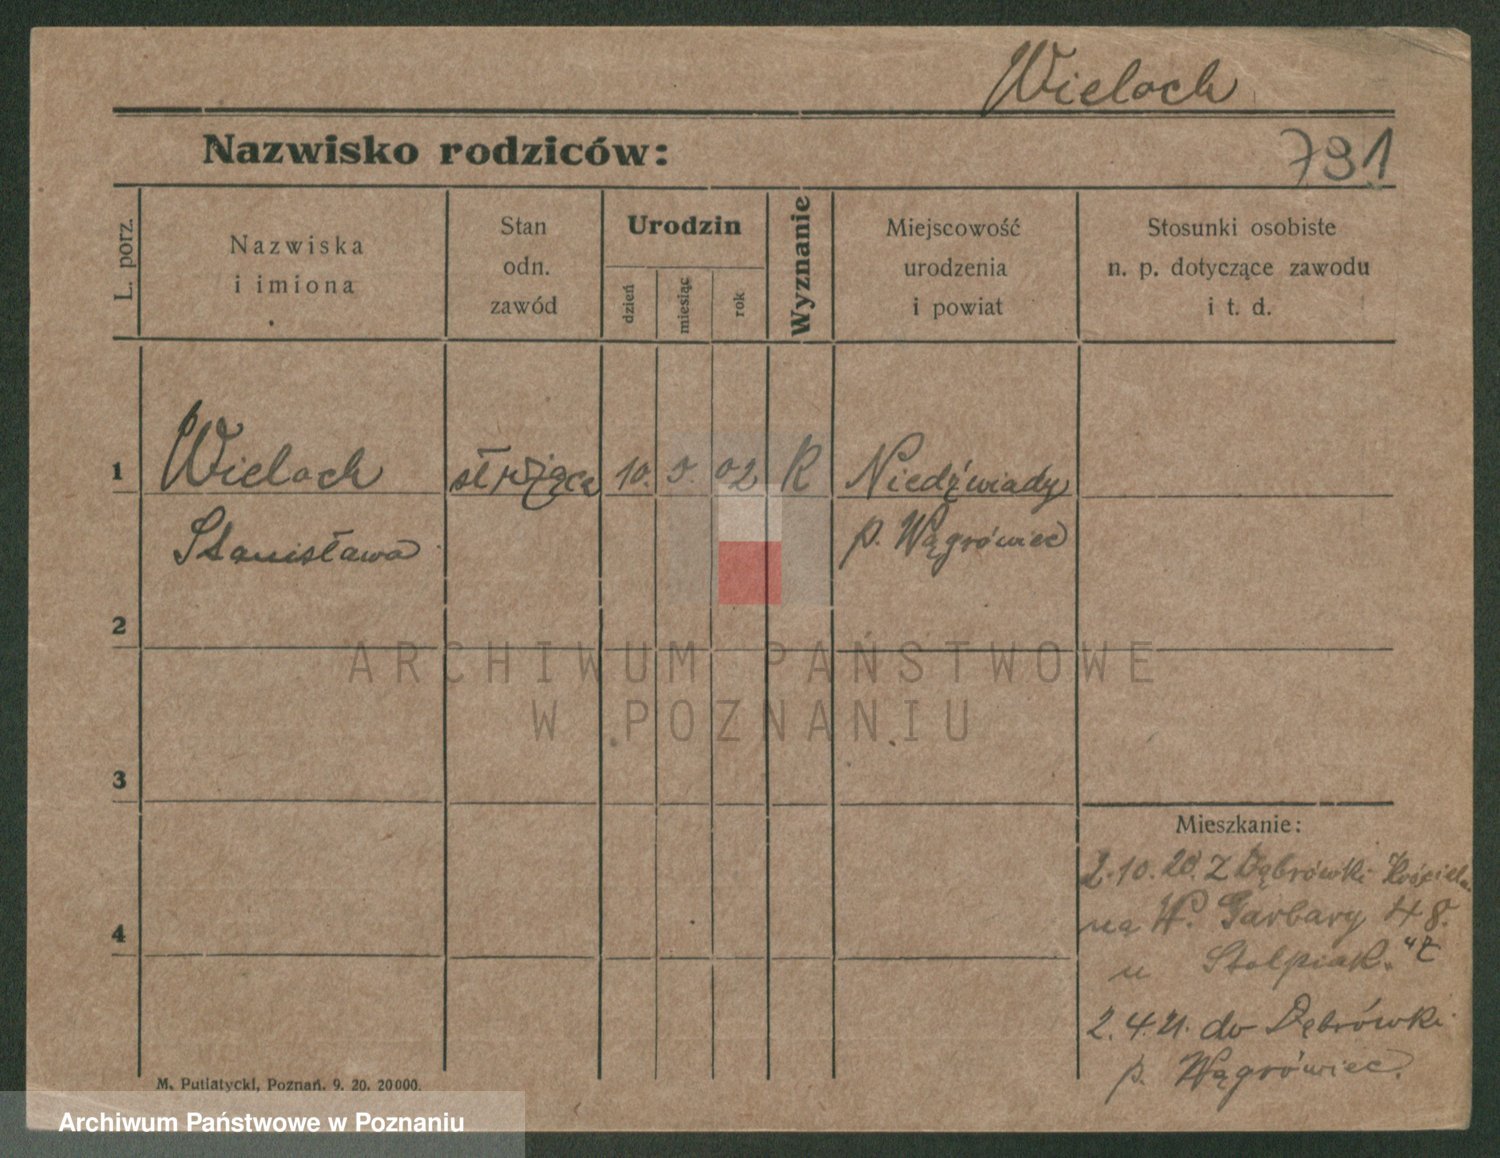 Wieloch
Nazwisko rodziców:
791
L. porz.
Nazwiska
i imiona
Stan
odn.
zawód
Urodzin
dzień
miesiąc
rok
Wyznanie
Miejscowość
urodzenia
i powiat
Stosunki osobiste
n. p. dotyczące zawodu
i t. d.
1
Wieloch
służąca
10.
5.
02
R
Niedźwiady
Stanisława
p. Wągrówiec
2
ARCHIWUM PAŃSTWOWE
W POZNANIU
3
Mieszkanie:
2.10.20. z Dąbrówki Kościeln.
4
na W. Garbary 48.
u Stolpiak.
2.4.21. do Dąbrówki
p. Wągrówiec.
M. Putiatycki, Poznań. 9. 20. 20000.
Archiwum Państwowe w Poznaniu